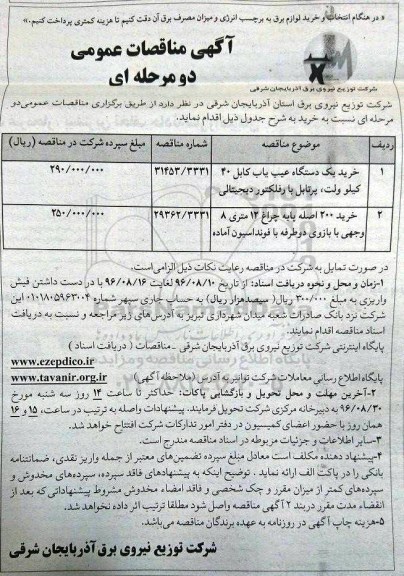 « در هنگام انتخاب و خرید لوازم برق به برچسب انرژی و میزان مصرف برق آن دقت کنیم تا هزینه کمتری پرداخت کنیم.»
آگهی مناقصات عمومی
دو مرحله ای
شرکت توزیع نیروی برق آذربایجان شرقی
شرکت توزیع نیروی برق استان آذربایجان شرقی در نظر دارد از طریق برگزاری مناقصات عمومی دو
مرحله ای نسبت به خرید به شرح جدول ذیل اقدام نماید.
ردیف موضوع مناقصه شماره مناقصه مبلغ سپرده شرکت در مناقصه (ریال)
۱ خرید یک دستگاه عیب یاب کابل ۴۰ کیلو ولت، پرتابل با رفلکتور دیجیتالی ۳۱۴۵۳/۳۳۳۱ ۲۹۰/۰۰۰/۰۰۰
۲ خرید ۲۰۰ اصله پایه چراغ ۱۲ متری ۸ وجهی با بازوی دوطرفه با فونداسیون آماده ۲۹۳۶۲/۳۳۳۱ ۲۵۰/۰۰۰/۰۰۰
در صورت تمایل به شرکت در مناقصه رعایت نکات ذیل الزامی‌است.
۱-زمان و محل و نحوه دریافت اسناد: از تاریخ ۹۶/۰۸/۱۰ لغایت ۹۶/۰۸/۱۶ با در دست داشتن فیش
واریزی به مبلغ ۳۰۰/۰۰۰ ریال( سیصدهزار ریال) به حساب جاری سپهر شماره ۰۱۰۱۸۰۵۹۶۳۰۰۴ این
شرکت نزد بانک صادرات شعبه میدان شهرداری تبریز به آدرس‌های زیر مراجعه و نسبت به دریافت
اسناد مناقصه اقدام نمایند.
پایگاه اینترنتی شرکت توزیع نیروی برق آذربایجان شرقی - مناقصات ( دریافت اسناد )
www.ezepdico.ir
پایگاه اطلاع رسانی معاملات شرکت توانیر به آدرس (ملاحظه آگهی) www.tavanir.org.ir
۲-آخرین مهلت و محل تحویل و بازگشایی پاکات: حداکثر تا ساعت ۱۴ روز سه شنبه مورخ
۹۶/۰۸/۳۰ به دبیرخانه مرکزی شرکت تحویل فرمایند. پیشنهادات واصله به ترتیب در ساعت، ۱۵ و ۱۶
همان روز با حضور اعضای کمیسیون در دفتر امور تدارکات شرکت افتتاح خواهد شد.
۳-سایر اطلاعات و جزئیات مربوطه در اسناد مناقصه مندرج است.
۴-پیشنهاد دهنده مکلف است معادل مبلغ سپرده تضمین‌های معتبر از جمله واریز نقدی، ضمانتنامه
بانکی را در پاکت الف ارائه نماید . توضیح اینکه به پیشنهادهای فاقد سپرده، سپرده‌های مخدوش و
سپرده‌های کمتر از میزان مقرر و چک شخصی و فاقد امضاء مخدوش مشروط پیشنهاداتی که بعد از
انقضاء مدت مقرر در بند ۲ آگهی مناقصه واصل شود مطلقا ترتیب اثر داده نخواهد شد.
۵-هزینه چاپ آگهی در روزنامه به عهده برندگان مناقصه می‌باشد.
شرکت توزیع نیروی برق آذربایجان شرقی